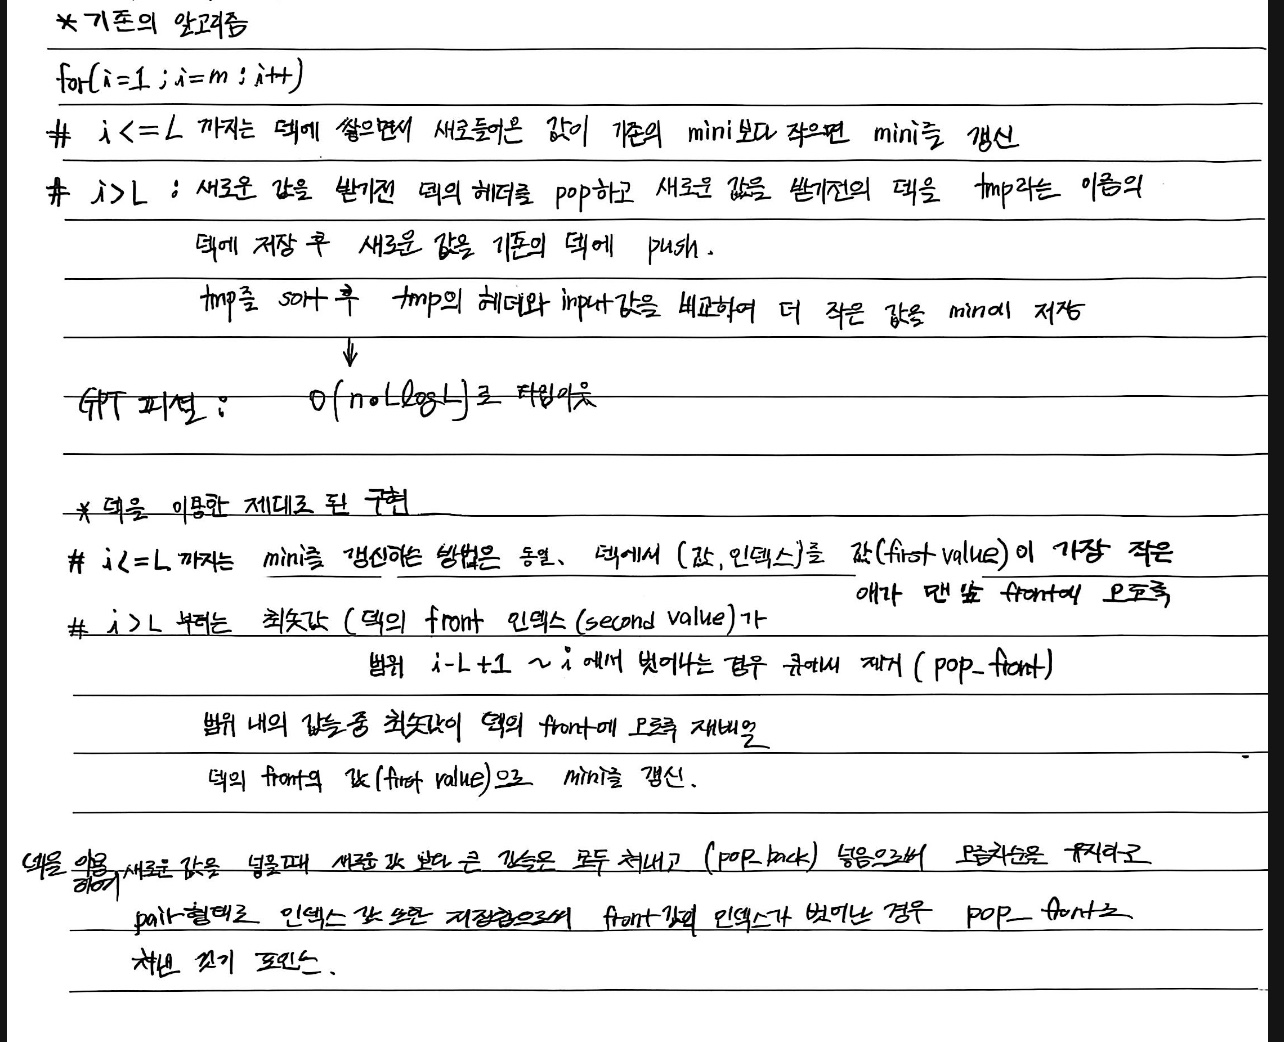 * 기존의 알고리즘
for(i=1 ; i=m ; i++)
# i<=L 까지는 덱에 쌓으면서 새로들어온 값이 기존의 mini보다 작으면 mini를 갱신
# i>L : 새로운 값을 받기전 덱의 헤더를 pop하고 새로운 값을 받기전의 덱을 tmp라는 이름의
덱에 저장 후 새로운 값을 기존의 덱에 push.
tmp를 sort 후 tmp의 헤더와 input값을 비교하여 더 작은 값을 min에 저장
↓
GPT 피셜 : O(n∘LlogL)로 타임아웃
* 덱을 이용한 제대로 된 구현
# i<=L 까지는 mini를 갱신하는 방법은 동일. 덱에서 (값, 인덱스)를 값(first value)이 가장 작은
애가 맨 앞 front에 오도록
# i>L 부터는 최솟값 (덱의 front 인덱스(second value)가
범위 i-L+1 ~ i 에서 벗어나는 경우 큐에서 제거 (pop_front)
범위 내의 값들 중 최솟값이 덱의 front에 오도록 재배열
덱의 front의 값(first value)으로 mini를 갱신.
덱을 이용하여 새로운 값을 넣을때 새로운 값 보다 큰 값들은 모두 쳐내고 (pop_back) 넣음으로써 오름차순을 유지하고
pair형태로 인덱스 값 또한 저장함으로써 front 값의 인덱스가 벗어난 경우 pop_front로
쳐낸 것기 포인트.